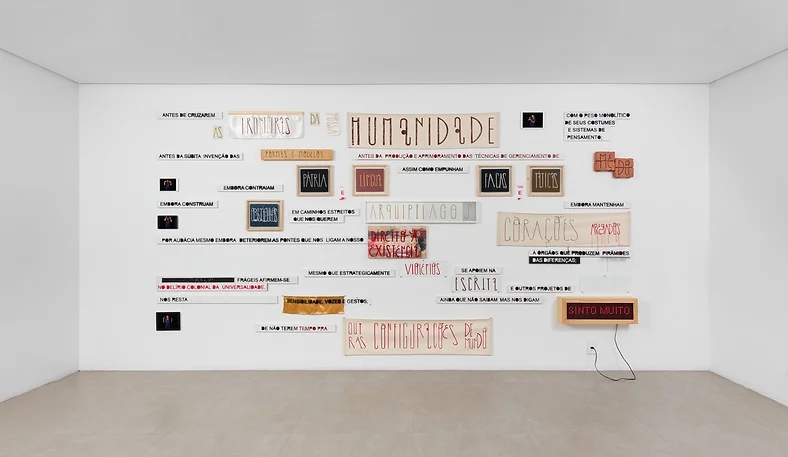 ANTES DE CRUZAREM
AS
FRONTEIRAS
DA
HUMANIDADE
COM O PESO MONOLÍTICO
DE SEUS COSTUMES
E SISTEMAS DE
PENSAMENTO,
ANTES DA SÚBITA INVENÇÃO DAS
FORMAS E MODELOS
ANTES DA PRODUÇÃO E APRIMORAMENTO DAS TÉCNICAS DE GERENCIAMENTO DE
MEDO
EMBORA CONTRAIAM
PÁTRIA
E
LÍNGUA
ASSIM COMO EMPUNHAM
FACAS
E
TÁTICAS
EMBORA CONSTRUAM
EM CAMINHOS ESTREITOS
QUE NOS QUEREM
ARQUIPÉLAGO
EMBORA MANTENHAM
CORAÇÕES
POR AUDÁCIA MESMO EMBORA DETERIOREM AS PONTES QUE NOS LIGAM A NOSSO
DIREITO À
EXISTÊNCIA
À ÓRGÃOS QUE PRODUZEM PIRÂMIDES
DAS DIFERENÇAS;
FRÁGEIS AFIRMEM-SE
NO DELÍRIO COLONIAL DA UNIVERSALIDADE,
MESMO QUE ESTRATEGICAMENTE
SE APOIEM NA
ESCRITA
E OUTROS PROJETOS DE
NOS RESTA
SENSIBILIDADE, VOZES E GESTOS,
AINDA QUE NÃO SAIBAM MAS NOS DIGAM
SINTO MUITO
DE NÃO TEREM TEMPO PRA
OUTRAS CONFIGURAÇÕES DE MUNDO